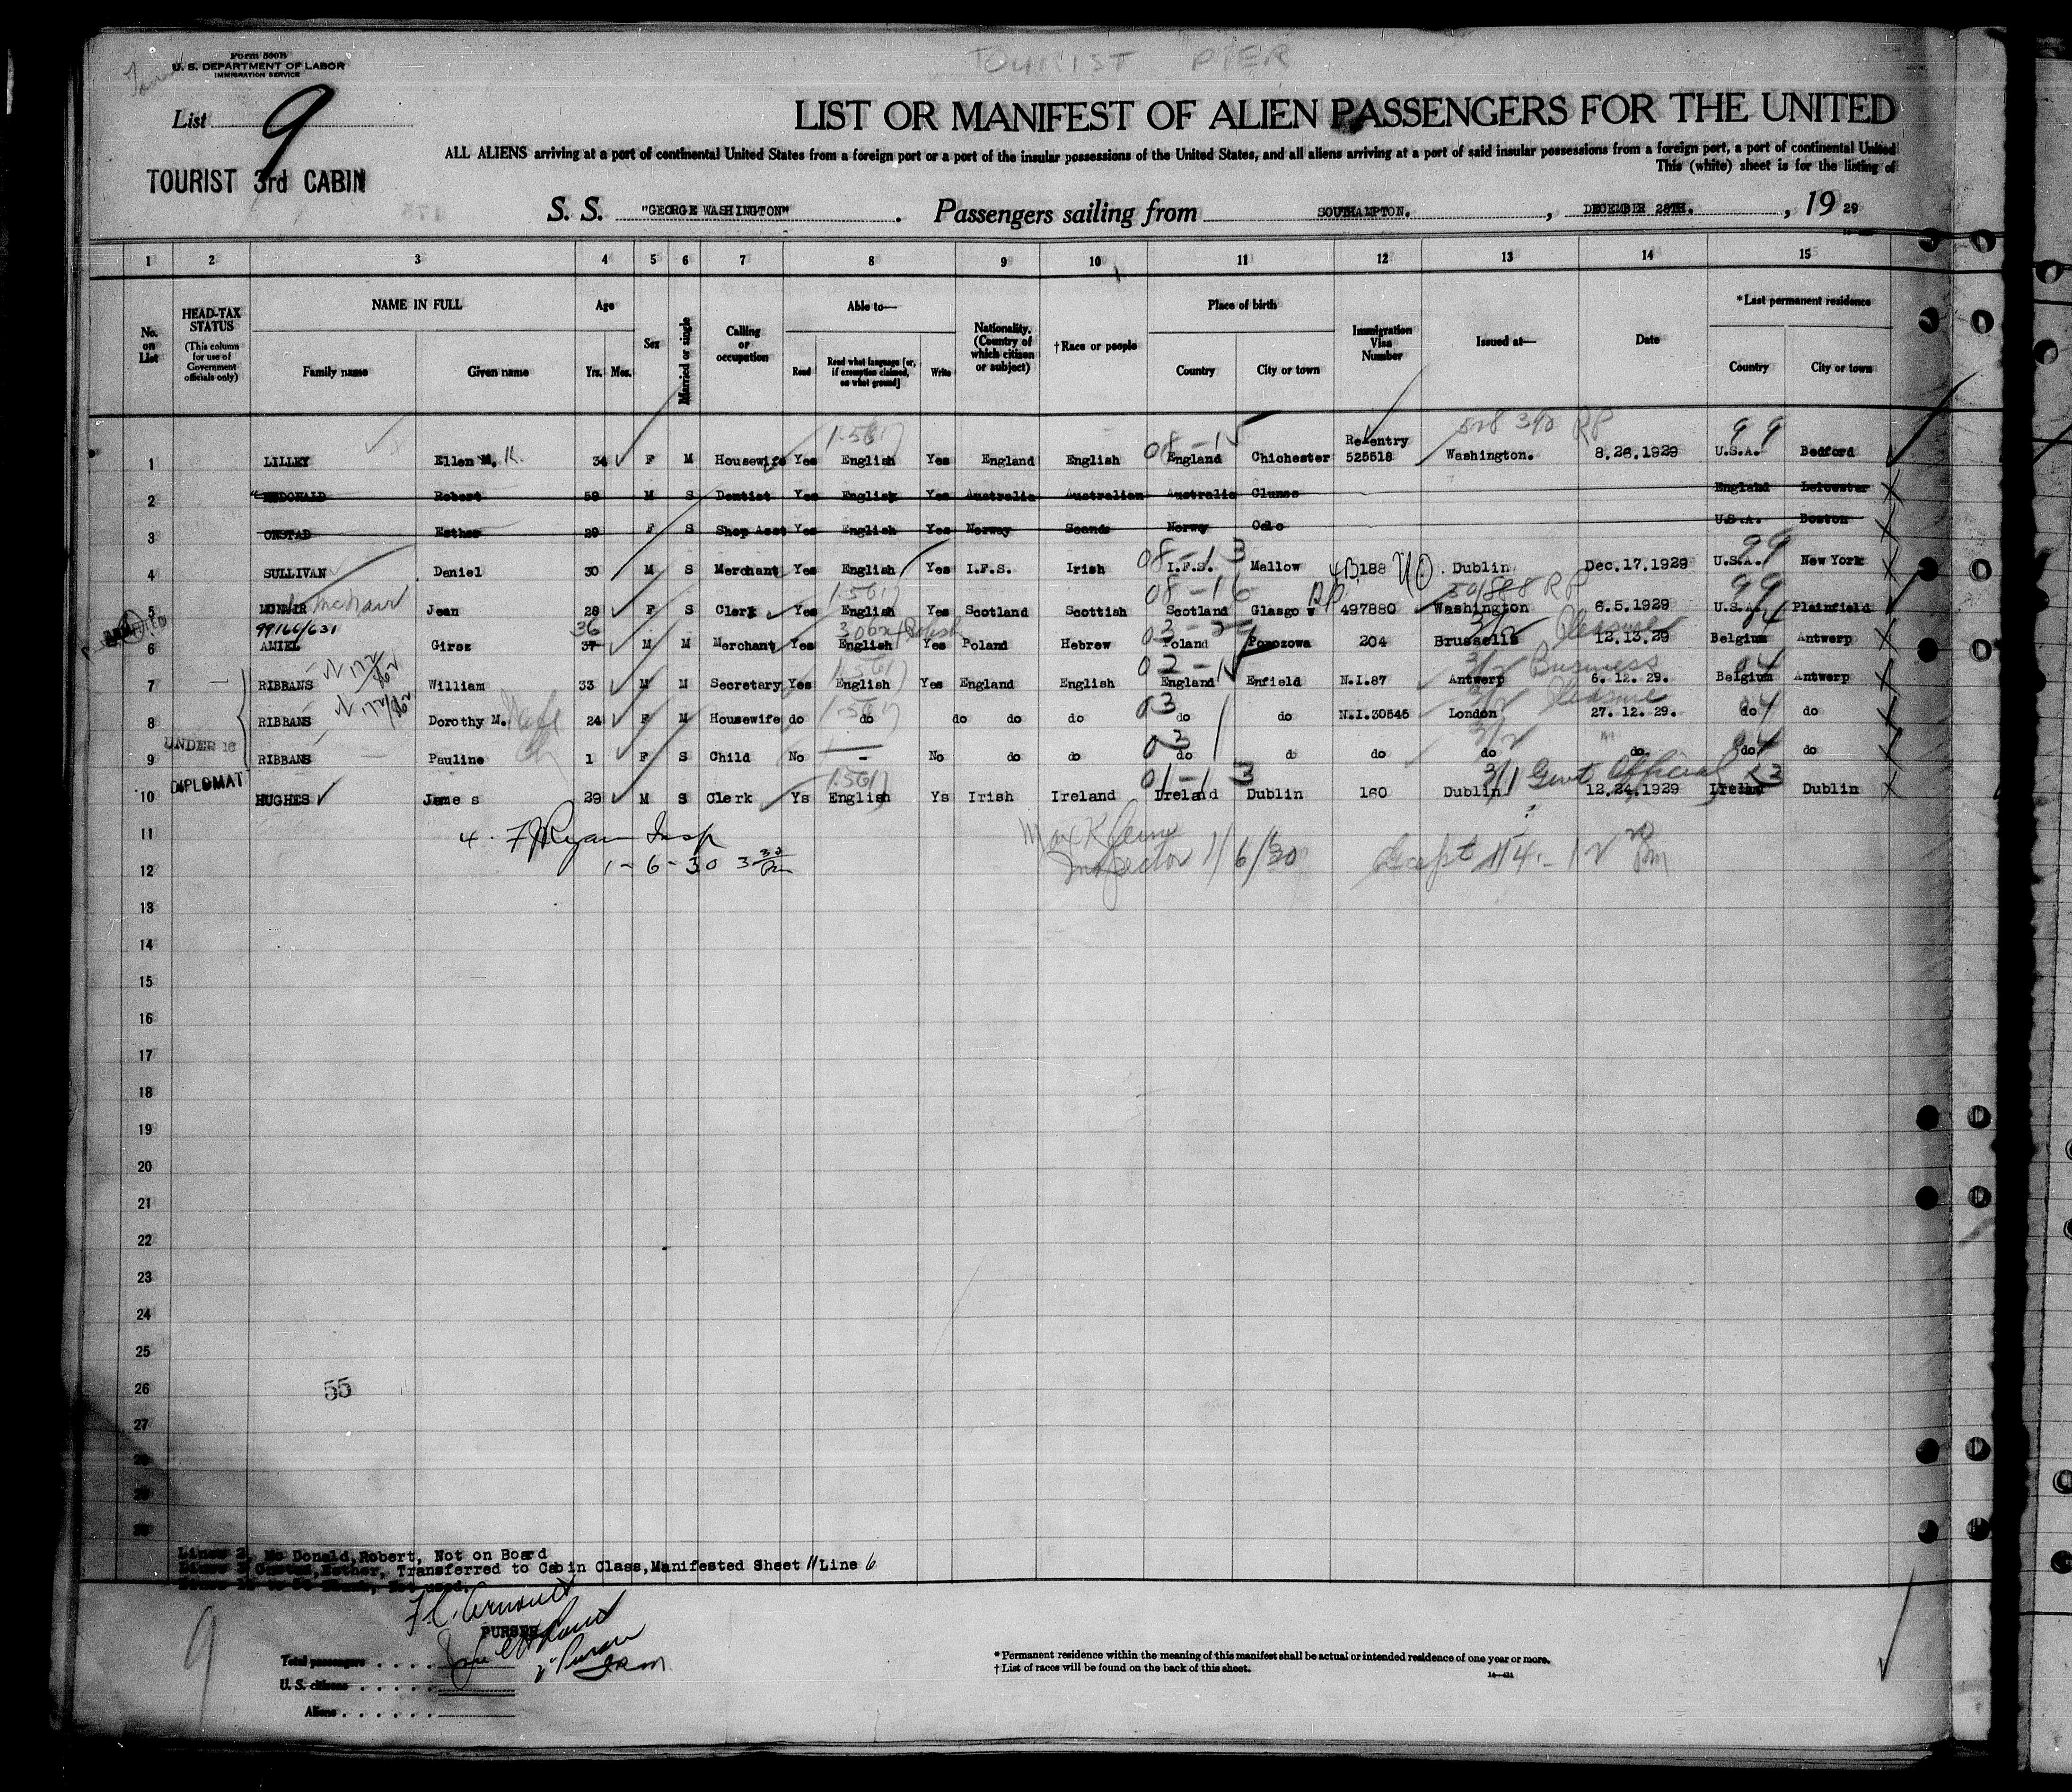 TOURIST PIER
Form 500B
U. S. DEPARTMENT OF LABOR
IMMIGRATION SERVICE
List 9
LIST OR MANIFEST OF ALIEN PASSENGERS FOR THE UNITED
ALL ALIENS arriving at a port of continental United States from a foreign port or a port of the insular possessions of the United States, and all aliens arriving at a port of said insular possessions from a foreign port, a port of continental United
This (white) sheet is for the listing of
TOURIST 3rd CABIN
S. S. "GEORGE WASHINGTON". Passengers sailing from SOUTHAMPTON., DECEMBER 28TH., 19 29
1 2 3 4 5 6 7 8 9 10 11 12 13 14 15
No. on List
HEAD-TAX STATUS (This column for use of Government officials only)
NAME IN FULL Family name Given name
Age Yrs. Mos.
Sex
Married or single
Calling or occupation
Able to— Read Read what language [or, if exemption claimed, on what ground] Write
Nationality. (Country of which citizen or subject)
†Race or people
Place of birth Country City or town
Immigration Visa Number
Issued at—
Date
*Last permanent residence Country City or town
1.561) 08-1 528390 RP 99
1 LILLEY Ellen M. K. 34 F M Housewife Yes English Yes England English England Chichester Re-entry 525518 Washington. 8.26.1929 U.S.A. Bedford
2 MCDONALD Robert 59 M S Dentist Yes English Yes Australia Australian Australia Clunes England Leicester
3 ONSTAD Esther 29 F S Shop Asst Yes English Yes Norway Scands Norwy Oslo U.S.A. Boston
08-13 99
4 SULLIVAN Daniel 30 M S Merchant Yes English Yes I.F.S. Irish I.F.S. Mallow 4B188 Dublin Dec.17.1929 U.S.A. New York
1.561) 08-16 RP 99
5 MCNAIR McNair Jean 28 F S Clerk Yes English Yes Scotland Scottish Scotland Glasgow 497880 Washington 6.5.1929 U.S.A. Plainfield
99166/631 36 Polish 3/2 Pleasure 04
6 AMIEL Girsz 37 M M Merchant Yes English Yes Poland Hebrew Poland Ponozowa 204 Brussells 12.13.29 Belgium Antwerp
1.561) 02-1 3/2 Business 04
7 RIBBANS William 33 M M Secretary Yes English Yes England English England Enfield N.I.87 Antwerp 6. 12. 29. Belgium Antwerp
1.561) 03 3/2 Pleasure 04
8 RIBBANS Dorothy M. Wife 24 F M Housewife do do do do do do do N.I.30545 London 27. 12. 29. do do
UNDER 16 03 3/2 04
9 RIBBANS Pauline Ch 1 F S Child No - No do do do d do do do do do
DIPLOMAT 1.561) 01-13 3/1 Govt Official
10 HUGHES James 29 M S Clerk Ys English Ys Irish Ireland Ireland Dublin 160 Dublin 12.24.1929 Ireland Dublin
11 4. F J Ryan Insp
12 1-6-30 3 30 Pm Inspector 1/6/30
13
14
15
16
17
18
19
20
21
22
23
24
25
26 55
27
28
29
30
Lines 2, Mc Donald,Robert, Not on Board
Lines 3 Onstad,Esther, Transferred to Cabin Class,Manifested Sheet 11 Line 6
9
PURSER
Total passengers
U. S. citizens
Aliens
* Permanent residence within the meaning of this manifest shall be actual or intended residence of one year or more.
† List of races will be found on the back of this sheet.